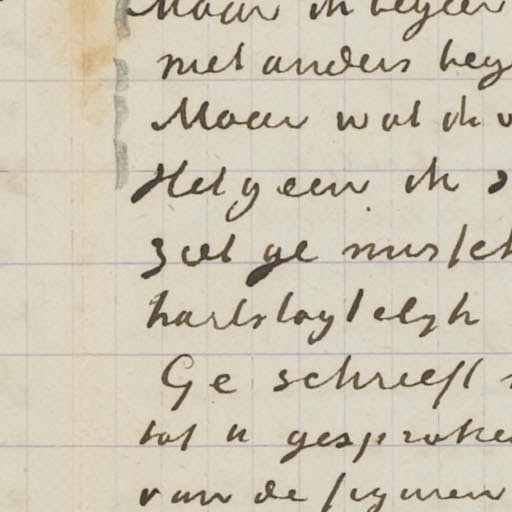 Maar ik begeer
niet anders beg
Maar wat ik v
Hetgeen ik s
zult ge missch
hartstogtelijk
Ge schreeft
tot u gesproke
van de figuren